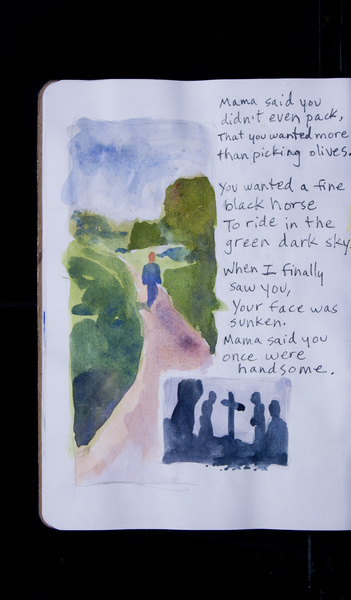 Mama said you
didn't even pack,
That you wanted more
than picking olives.
You wanted a fine
black horse
To ride in the
green dark sky.
When I finally
saw you,
Your face was
sunken.
Mama said you
once were
handsome.